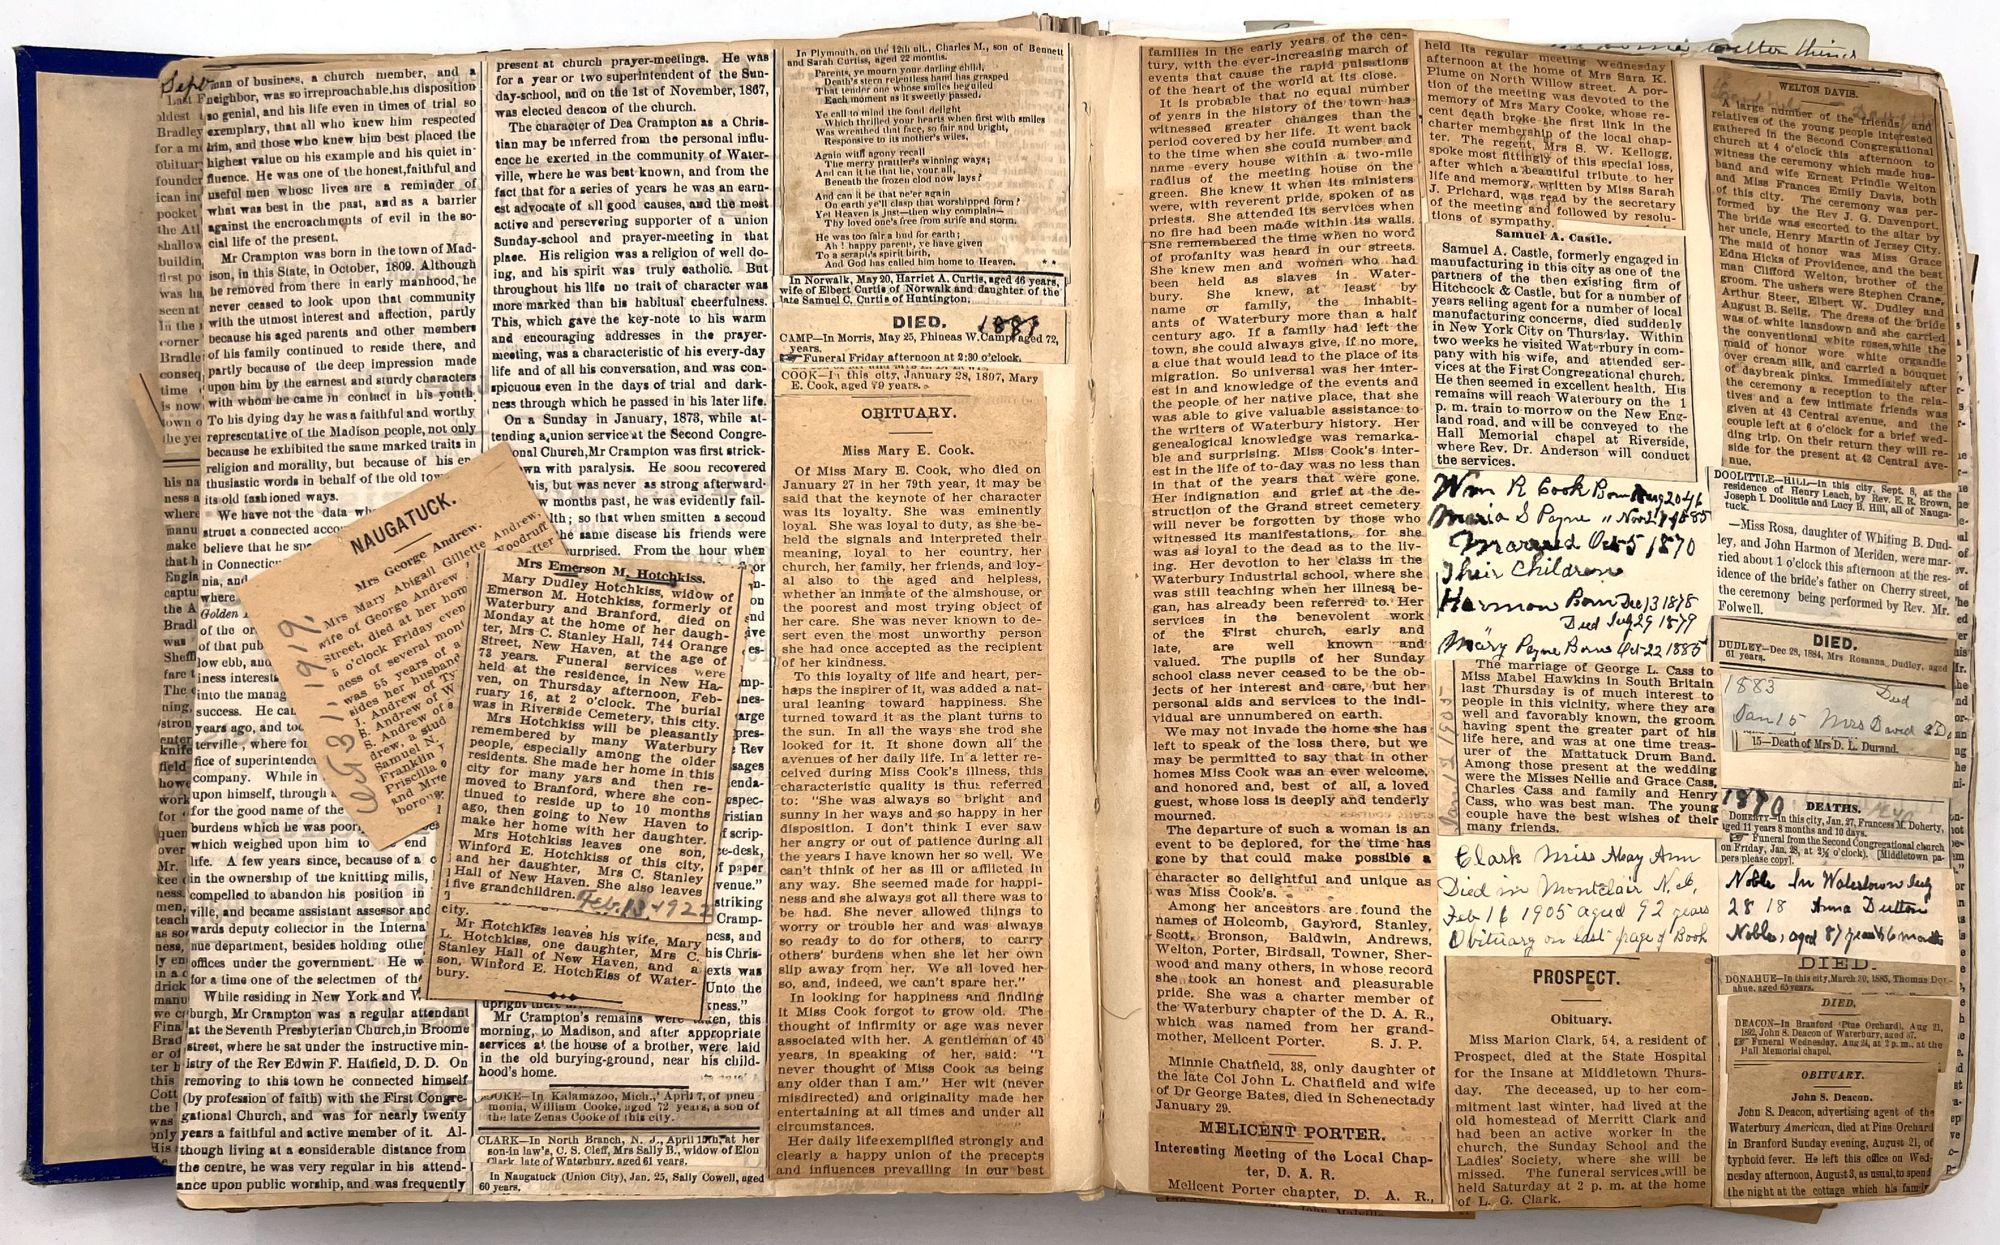 Sept
man of business, a church member, and a
neighbor, was so irreproachable, his disposition
so genial, and his life even in times of trial so
exemplary, that all who knew him respected
him, and those who knew him best placed the
highest value on his example and his quiet in-
fluence. He was one of the honest, faithful and
useful men whose lives are a reminder of
what was best in the past, and as a barrier
against the encroachments of evil in the so-
cial life of the present.
Mr Crampton was born in the town of Mad-
ison, in this State, in October, 1809. Although
he removed from there in early manhood, he
never ceased to look upon that community
with the utmost interest and affection, partly
because his aged parents and other members
of his family continued to reside there, and
partly because of the deep impression made
upon him by the earnest and sturdy characters
with whom he came in contact in his youth.
To his dying day he was a faithful and worthy
representative of the Madison people, not only
because he exhibited the same marked traits in
religion and morality, but because of his en-
thusiastic words in behalf of the old town
its old fashioned ways.
We have not the data wh
struct a connected accou
believe that he spe
in Connecticu
nia, and
where
Golden
of the on
of that pub
low ebb, and
iness interest
into the manag
success. He can
years ago, and too
terville, where for
fice of superintende
company. While in
upon himself, through
for the good name of the
burdens which he was poor
which weighed upon him to end
life. A few years since, because of a
in the ownership of the knitting mills,
compelled to abandon his position in
ville, and became assistant assessor and
wards deputy collector in the Interna
nue department, besides holding othe
offices under the government. He w
for a time one of the selectmen of the
While residing in New York and W
burgh, Mr Crampton was a regular attendant
at the Seventh Presbyterian Church, in Broome
street, where he sat under the instructive min-
istry of the Rev Edwin F. Hatfield, D. D. On
removing to this town he connected himself
(by profession of faith) with the First Congre-
gational Church, and was for nearly twenty
years a faithful and active member of it. Al-
though living at a considerable distance from
the centre, he was very regular in his attend-
ance upon public worship, and was frequently
present at church prayer-meetings. He was
for a year or two superintendent of the Sun-
day-school, and on the 1st of November, 1867,
was elected deacon of the church.
The character of Dea Crampton as a Chris-
tian may be inferred from the personal influ-
ence he exerted in the community of Water-
ville, where he was best known, and from the
fact that for a series of years he was an earn-
est advocate of all good causes, and the most
active and persevering supporter of a union
Sunday-school and prayer-meeting in that
place. His religion was a religion of well do-
ing, and his spirit was truly catholic. But
throughout his life no trait of character was
more marked than his habitual cheerfulness.
This, which gave the key-note to his warm
and encouraging addresses in the prayer-
meeting, was a characteristic of his every-day
life and of all his conversation, and was con-
spicuous even in the days of trial and dark-
ness through which he passed in his later life.
On a Sunday in January, 1873, while at-
tending a union service at the Second Congre-
onal Church, Mr Crampton was first strick-
wn with paralysis. He soon recovered
his, but was never as strong afterward-
w months past, he was evidently fail-
lth; so that when smitten a second
he same disease his friends were
urprised. From the hour when
NAUGATUCK.
Mrs George Andrew.
Mrs Mary Abigail Gillette Andrew,
wife of George Andrew
Street, died at her hom
5 o'clock Friday even
ness of several mon
was 55 years of a
sides her husband
J. Andrew of Ty
E. Andrew of W
S. Andrew of s
drew, a stud
Samuel N.
Franklin
Priscilla
and Mrs
boroug
Oct. 31. 1919.
Mrs Emerson M. Hotchkiss.
Mary Dudley Hotchkiss, widow of
Emerson M. Hotchkiss, formerly of
Waterbury and Branford, died on
Monday at the home of her daugh-
ter, Mrs C. Stanley Hall, 744 Orange
Street, New Haven, at the age of
73 years. Funeral services were
held at the residence, in New Ha-
ven, on Thursday afternoon, Feb-
ruary 16, at 2 o'clock. The burial
was in Riverside Cemetery, this city.
Mrs Hotchkiss will be pleasantly
remembered by many Waterbury
people, especially among the older
residents. She made her home in this
city for many yars and then re-
moved to Branford, where she con-
tinued to reside up to 10 months
ago, then going to New Haven to
make her home with her daughter.
Mrs Hotchkiss leaves one son,
Winford E. Hotchkiss of this city,
and her daughter, Mrs C. Stanley
Hall of New Haven. She also leaves
five grandchildren.
Feb. 13-1922
city.
Mr Hotchkiss leaves his wife, Mary
L. Hotchkiss, one daughter, Mrs C.
Stanley Hall of New Haven, and a
son, Winford E. Hotchkiss of Water-
bury.
Mr Crampton's remains were taken, this
morning, to Madison, and after appropriate
services at the house of a brother, were laid
in the old burying-ground, near his child-
hood's home.
OOKE—In Kalamazoo, Mich., April 7, of pneu-
monia, William Cooke, aged 72 years, a son of
the late Zenas Cooke of this city.
CLARK—In North Branch, N. J., April 15th, at her
son-in law's, C. S. Cleff, Mrs Sally B., widow of Elon
Clark, late of Waterbury, aged 61 years.
In Naugatuck (Union City), Jan. 25, Sally Cowell, aged
60 years.
In Plymouth, on the 12th ult., Charles M., son of Bennett
and Sarah Curtiss, aged 22 months.
Parents, ye mourn your darling child,
Death's stern relentless hand has grasped
That tender one whose smiles beguiled
Each moment as it sweetly passed.
Ye call to mind the fond delight
Which thrilled your hearts when first with smiles
Was wreathed that face, so fair and bright,
Responsive to its mother's wiles,
Again with agony recall
The merry prattler's winning ways;
And can it be that he, your all,
Beneath the frozen clod now lays?
And can it be that ne'er again
On earth ye'll clasp that worshipped form?
Yet Heaven is just—then why complain—
Thy loved one's free from strife and storm.
He was too fair a bud for earth;
Ah! happy parents, ye have given
To a seraph's spirit birth,
And God has called him home to Heaven. **
In Norwalk, May 20, Harriet A. Curtis, aged 46 years,
wife of Elbert Curtis of Norwalk and daughter of the
late Samuel C. Curtis of Huntington.
DIED.
CAMP—In Morris, May 25, Phineas W. Camp, aged 72,
years.
Funeral Friday afternoon at 2:30 o'clock.
COOK—In this city, January 28, 1897, Mary
E. Cook, aged 79 years.
OBITUARY.
Miss Mary E. Cook.
Of Miss Mary E. Cook, who died on
January 27 in her 79th year, it may be
said that the keynote of her character
was its loyalty. She was eminently
loyal. She was loyal to duty, as she be-
held the signals and interpreted their
meaning, loyal to her country, her
church, her family, her friends, and loy-
al also to the aged and helpless,
whether an inmate of the almshouse, or
the poorest and most trying object of
her care. She was never known to de-
sert even the most unworthy person
she had once accepted as the recipient
of her kindness.
To this loyalty of life and heart, per-
haps the inspirer of it, was added a nat-
ural leaning toward happiness. She
turned toward it as the plant turns to
the sun. In all the ways she trod she
looked for it. It shone down all the
avenues of her daily life. In a letter re-
ceived during Miss Cook's illness, this
characteristic quality is thus referred
to: "She was always so bright and
sunny in her ways and so happy in her
disposition. I don't think I ever saw
her angry or out of patience during all
the years I have known her so well. We
can't think of her as ill or afflicted in
any way. She seemed made for happi-
ness and she always got all there was to
be had. She never allowed things to
worry or trouble her and was always
so ready to do for others, to carry
others' burdens when she let her own
slip away from her. We all loved her
so, and, indeed, we can't spare her."
In looking for happiness and finding
it Miss Cook forgot to grow old. The
thought of infirmity or age was never
associated with her. A gentleman of 45
years, in speaking of her, said: "I
never thought of Miss Cook as being
any older than I am." Her wit (never
misdirected) and originality made her
entertaining at all times and under all
circumstances.
Her daily life exemplified strongly and
clearly a happy union of the precepts
and influences prevailing in our best
families in the early years of the cen-
tury, with the ever-increasing march of
events that cause the rapid pulsations
of the heart of the world at its close.
It is probable that no equal number
of years in the history of the town has
witnessed greater changes than the
period covered by her life. It went back
to the time when she could number and
name every house within a two-mile
radius of the meeting house on the
green. She knew it when its ministers
were, with reverent pride, spoken of as
priests. She attended its services when
no fire had been made within its walls.
She remembered the time when no word
of profanity was heard in our streets.
She knew men and women who had
been held as slaves in Water-
bury. She knew, at least by
name or family, the inhabit-
ants of Waterbury more than a half
century ago. If a family had left the
town, she could always give, if no more,
a clue that would lead to the place of its
migration. So universal was her inter-
est in and knowledge of the events and
the people of her native place, that she
was able to give valuable assistance to
the writers of Waterbury history. Her
genealogical knowledge was remarka-
ble and surprising. Miss Cook's inter-
est in the life of to-day was no less than
in that of the years that were gone.
Her indignation and grief at the de-
struction of the Grand street cemetery
will never be forgotten by those who
witnessed its manifestations, for she
was as loyal to the dead as to the liv-
ing. Her devotion to her class in the
Waterbury Industrial school, where she
was still teaching when her illness be-
gan, has already been referred to. Her
services in the benevolent work
of the First church, early and
late, are well known and
valued. The pupils of her Sunday
school class never ceased to be the ob-
jects of her interest and care, but her
personal aids and services to the indi-
vidual are unnumbered on earth.
We may not invade the home she has
left to speak of the loss there, but we
may be permitted to say that in other
homes Miss Cook was an ever welcome,
and honored and, best of all, a loved
guest, whose loss is deeply and tenderly
mourned.
The departure of such a woman is an
event to be deplored, for the time has
gone by that could make possible a
character so delightful and unique as
was Miss Cook's.
Among her ancestors are found the
names of Holcomb, Gaylord, Stanley,
Scott, Bronson, Baldwin, Andrews,
Welton, Porter, Birdsall, Towner, Sher-
wood and many others, in whose record
she took an honest and pleasurable
pride. She was a charter member of
the Waterbury chapter of the D. A. R.,
which was named from her grand-
mother, Melicent Porter. S. J. P.
Minnie Chatfield, 38, only daughter of
the late Col John L. Chatfield and wife
of Dr George Bates, died in Schenectady
January 29.
MELICENT PORTER.
Interesting Meeting of the Local Chap-
ter, D. A. R.
Melicent Porter chapter, D. A. R.,
held its regular meeting Wednesday
afternoon at the home of Mrs Sara K.
Plume on North Willow street. A por-
tion of the meeting was devoted to the
memory of Mrs Mary Cooke, whose re-
cent death broke the first link in the
charter membership of the local chap-
ter. The regent, Mrs S. W. Kellogg,
spoke most fittingly of this special loss,
after which a beautiful tribute to her
life and memory, written by Miss Sarah
J. Prichard, was read by the secretary
of the meeting and followed by resolu-
tions of sympathy.
Samuel A. Castle.
Samuel A. Castle, formerly engaged in
manufacturing in this city as one of the
partners of the then existing firm of
Hitchcock & Castle, but for a number of
years selling agent for a number of local
manufacturing concerns, died suddenly
in New York City on Thursday. Within
two weeks he visited Waterbury in com-
pany with his wife, and attended ser-
vices at the First Congregational church.
He then seemed in excellent health. His
remains will reach Waterbury on the 1
p. m. train to morrow on the New Eng-
land road, and will be conveyed to the
Hall Memorial chapel at Riverside,
where Rev. Dr. Anderson will conduct
the services.
Wm R Cook Born Aug 20 46
Maria S Payne " Nov 27
Married Oct 5 1870
Their Children
Harmon Born Dec 13 1878
Died July 29 1879
Mary Payne Born Oct-22 1885
Jan 12 1905
The marriage of George L. Cass to
Miss Mabel Hawkins in South Britain
last Thursday is of much interest to
people in this vicinity, where they are
well and favorably known, the groom
having spent the greater part of his
life here, and was at one time treas-
urer of the Mattatuck Drum Band.
Among those present at the wedding
were the Misses Nellie and Grace Cass,
Charles Cass and family and Henry
Cass, who was best man. The young
couple have the best wishes of their
many friends.
Clark Miss May Ann
Died in Montclair N.J,
Feb 16 1905 aged 92 years
Obituary on last page of Book
PROSPECT.
Obituary.
Miss Marion Clark, 54, a resident of
Prospect, died at the State Hospital
for the Insane at Middletown Thurs-
day. The deceased, up to her com-
mitment last winter, had lived at the
old homestead of Merritt Clark and
had been an active worker in the
church, the Sunday School and the
Ladies' Society, where she will be
missed. The funeral services will be
held Saturday at 2 p. m. at the home
of L. G. Clark.
WELTON DAVIS.
A large number of the friends and
relatives of the young people interested
gathered in the Second Congregational
church at 4 o'clock this afternoon to
witness the ceremony which made hus-
band and wife Ernest Prindle Welton
and Miss Frances Emily Davis, both
of this city. The ceremony was per-
formed by the Rev J. G. Davenport.
The bride was escorted to the altar by
her uncle, Henry Martin of Jersey City.
The maid of honor was Miss Grace
Edna Hicks of Providence, and the best
man Clifford Welton, brother of the
groom. The ushers were Stephen Crane,
Arthur Steer, Elbert W. Dudley and
August B. Selig. The dress of the bride
was of white lansdown and she carried
the conventional white roses, while the
maid of honor wore white organdie
over cream silk, and carried a bouquet
of daybreak pinks. Immediately after
the ceremony a reception to the rela-
tives and a few intimate friends was
given at 43 Central avenue, and the
couple left at 6 o'clock for a brief wed-
ding trip. On their return they will re-
side for the present at 43 Central ave-
nue.
DOOLITTLE—HILL—In this city, Sept. 8, at the
residence of Henry Leach, by Rev. E. R. Brown,
Joseph I. Doolittle and Lucy B. Hill, all of Nauga-
tuck.
—Miss Rosa, daughter of Whiting B. Dud-
ley, and John Harmon of Meriden, were mar-
ried about 1 o'clock this afternoon at the res-
idence of the bride's father on Cherry street,
the ceremony being performed by Rev. Mr.
Folwell.
DIED.
DUDLEY—Dec 28, 1884, Mrs Rosanna Dudley, aged
61 years.
1883 Died
Jan 15 Mrs David
15—Death of Mrs D. L. Durand.
1870
DEATHS.
DOHERTY—In this city, Jan. 27, Francess M. Doherty,
aged 11 years 8 months and 10 days.
Funeral from the Second Congregational church
on Friday, Jan. 28, at 2½ o'clock. [Middletown pa-
pers please copy].
Noble In Watertown July
28 18 Anna Dutton
Noble, aged 87 years 6 months
DIED.
DONAHUE—In this city, March 30, 1885, Thomas Don-
ahue, aged 65 years.
DIED.
DEACON—In Branford (Pine Orchard), Aug 21,
1892, John S. Deacon of Waterbury, aged 57.
Funeral Wednesday, Aug 24, at 2 p. m., at the
Hall Memorial chapel.
OBITUARY.
John S. Deacon.
John S. Deacon, advertising agent of the
Waterbury American, died at Pine Orchard
in Branford Sunday evening, August 21, of
typhoid fever. He left this office on Wed-
nesday afternoon, August 3, as usual, to spend
the night at the cottage which his family